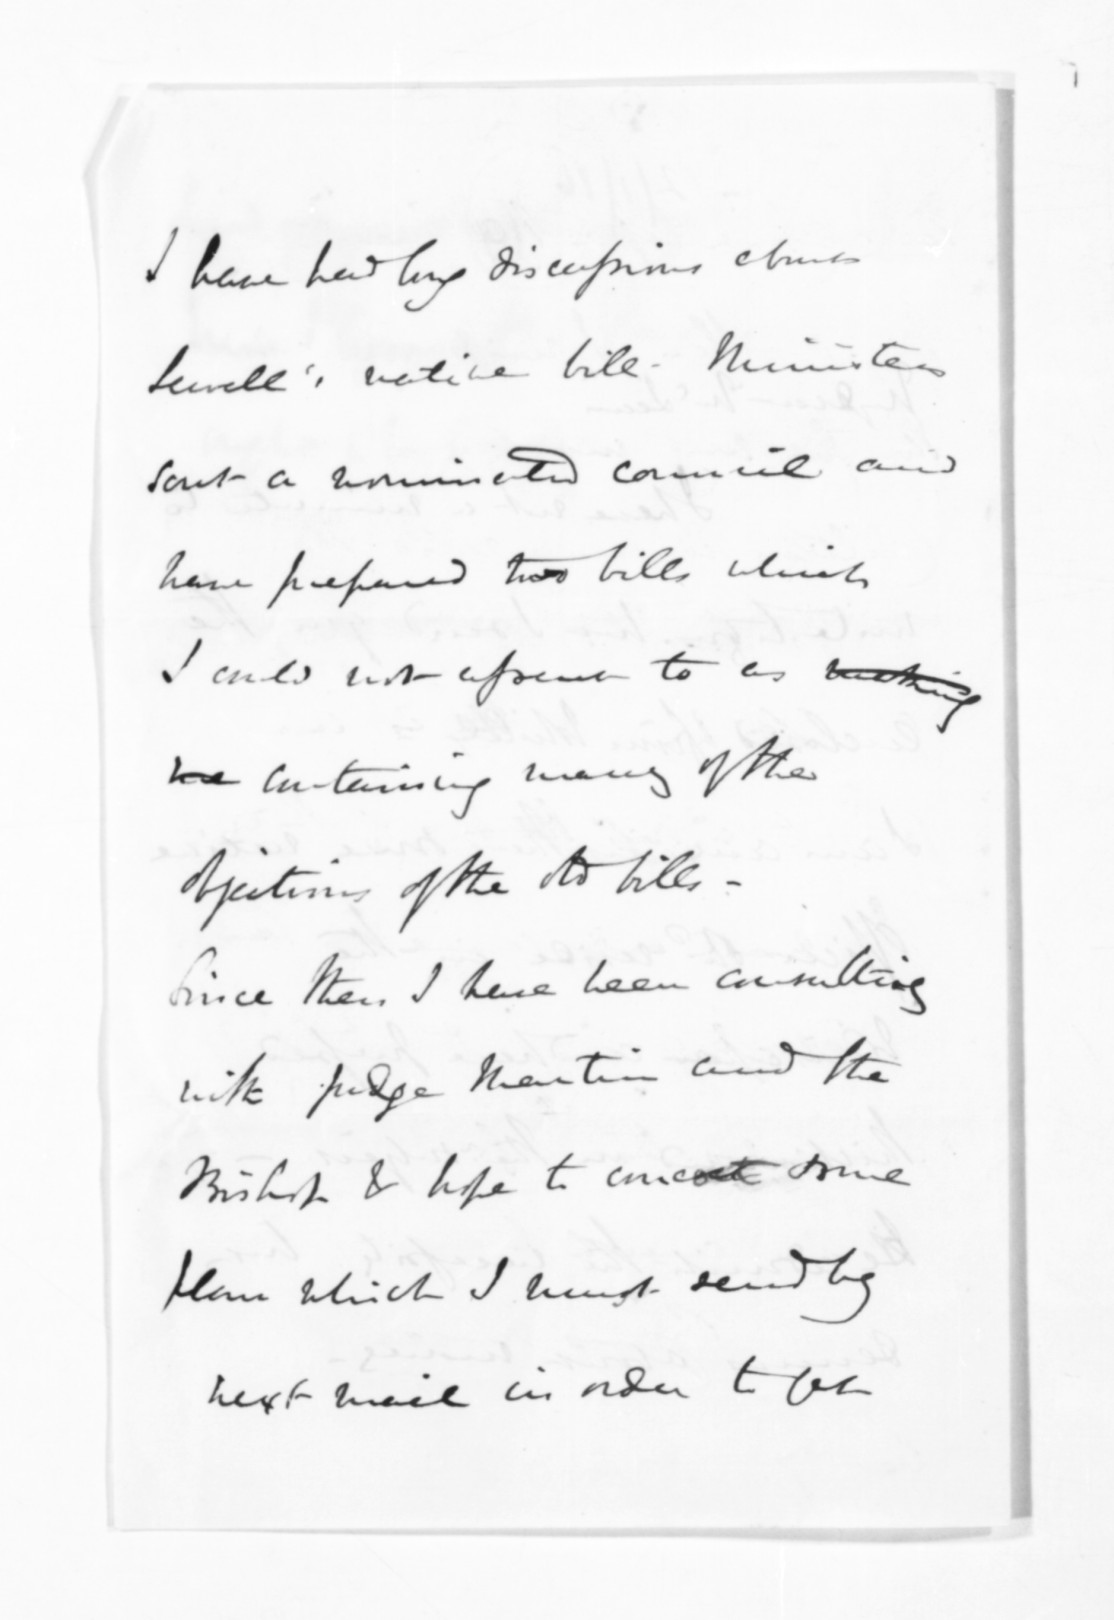 I have had long discussions about
Sewell's native bill - Ministers
want a nominated council and
have prepared two bills which
I could not assent to as making
me containing many of the
objections of the old bills -
Since then I have been consulting
with Judge Martin and the
Bishop & hope to concoct some
plan which I must send by
next mail in order to get